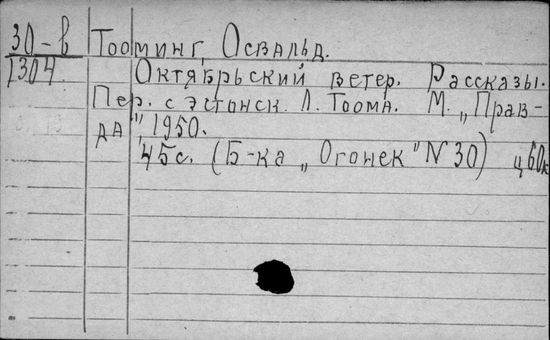 30-в Тооминг, Освальд.
1304. Октябрьский ветер. Рассказы.
Пер. с эстонск. Л. Тоома. М. „Прав-
да", 1950.
45 с. (Б-ка „Огонек" N 30) ц 60к